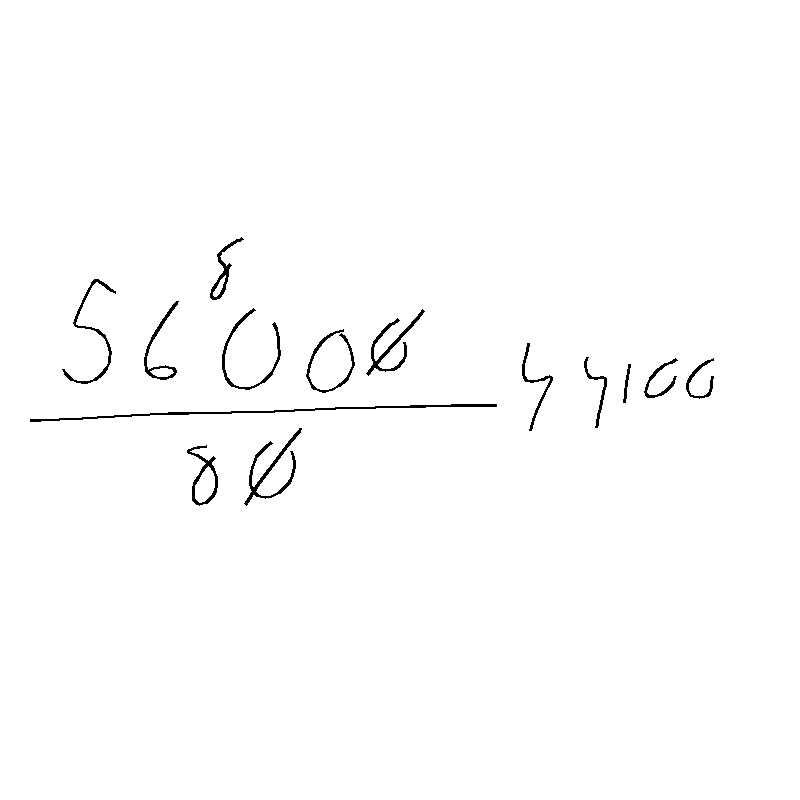 8
56000
80
44100